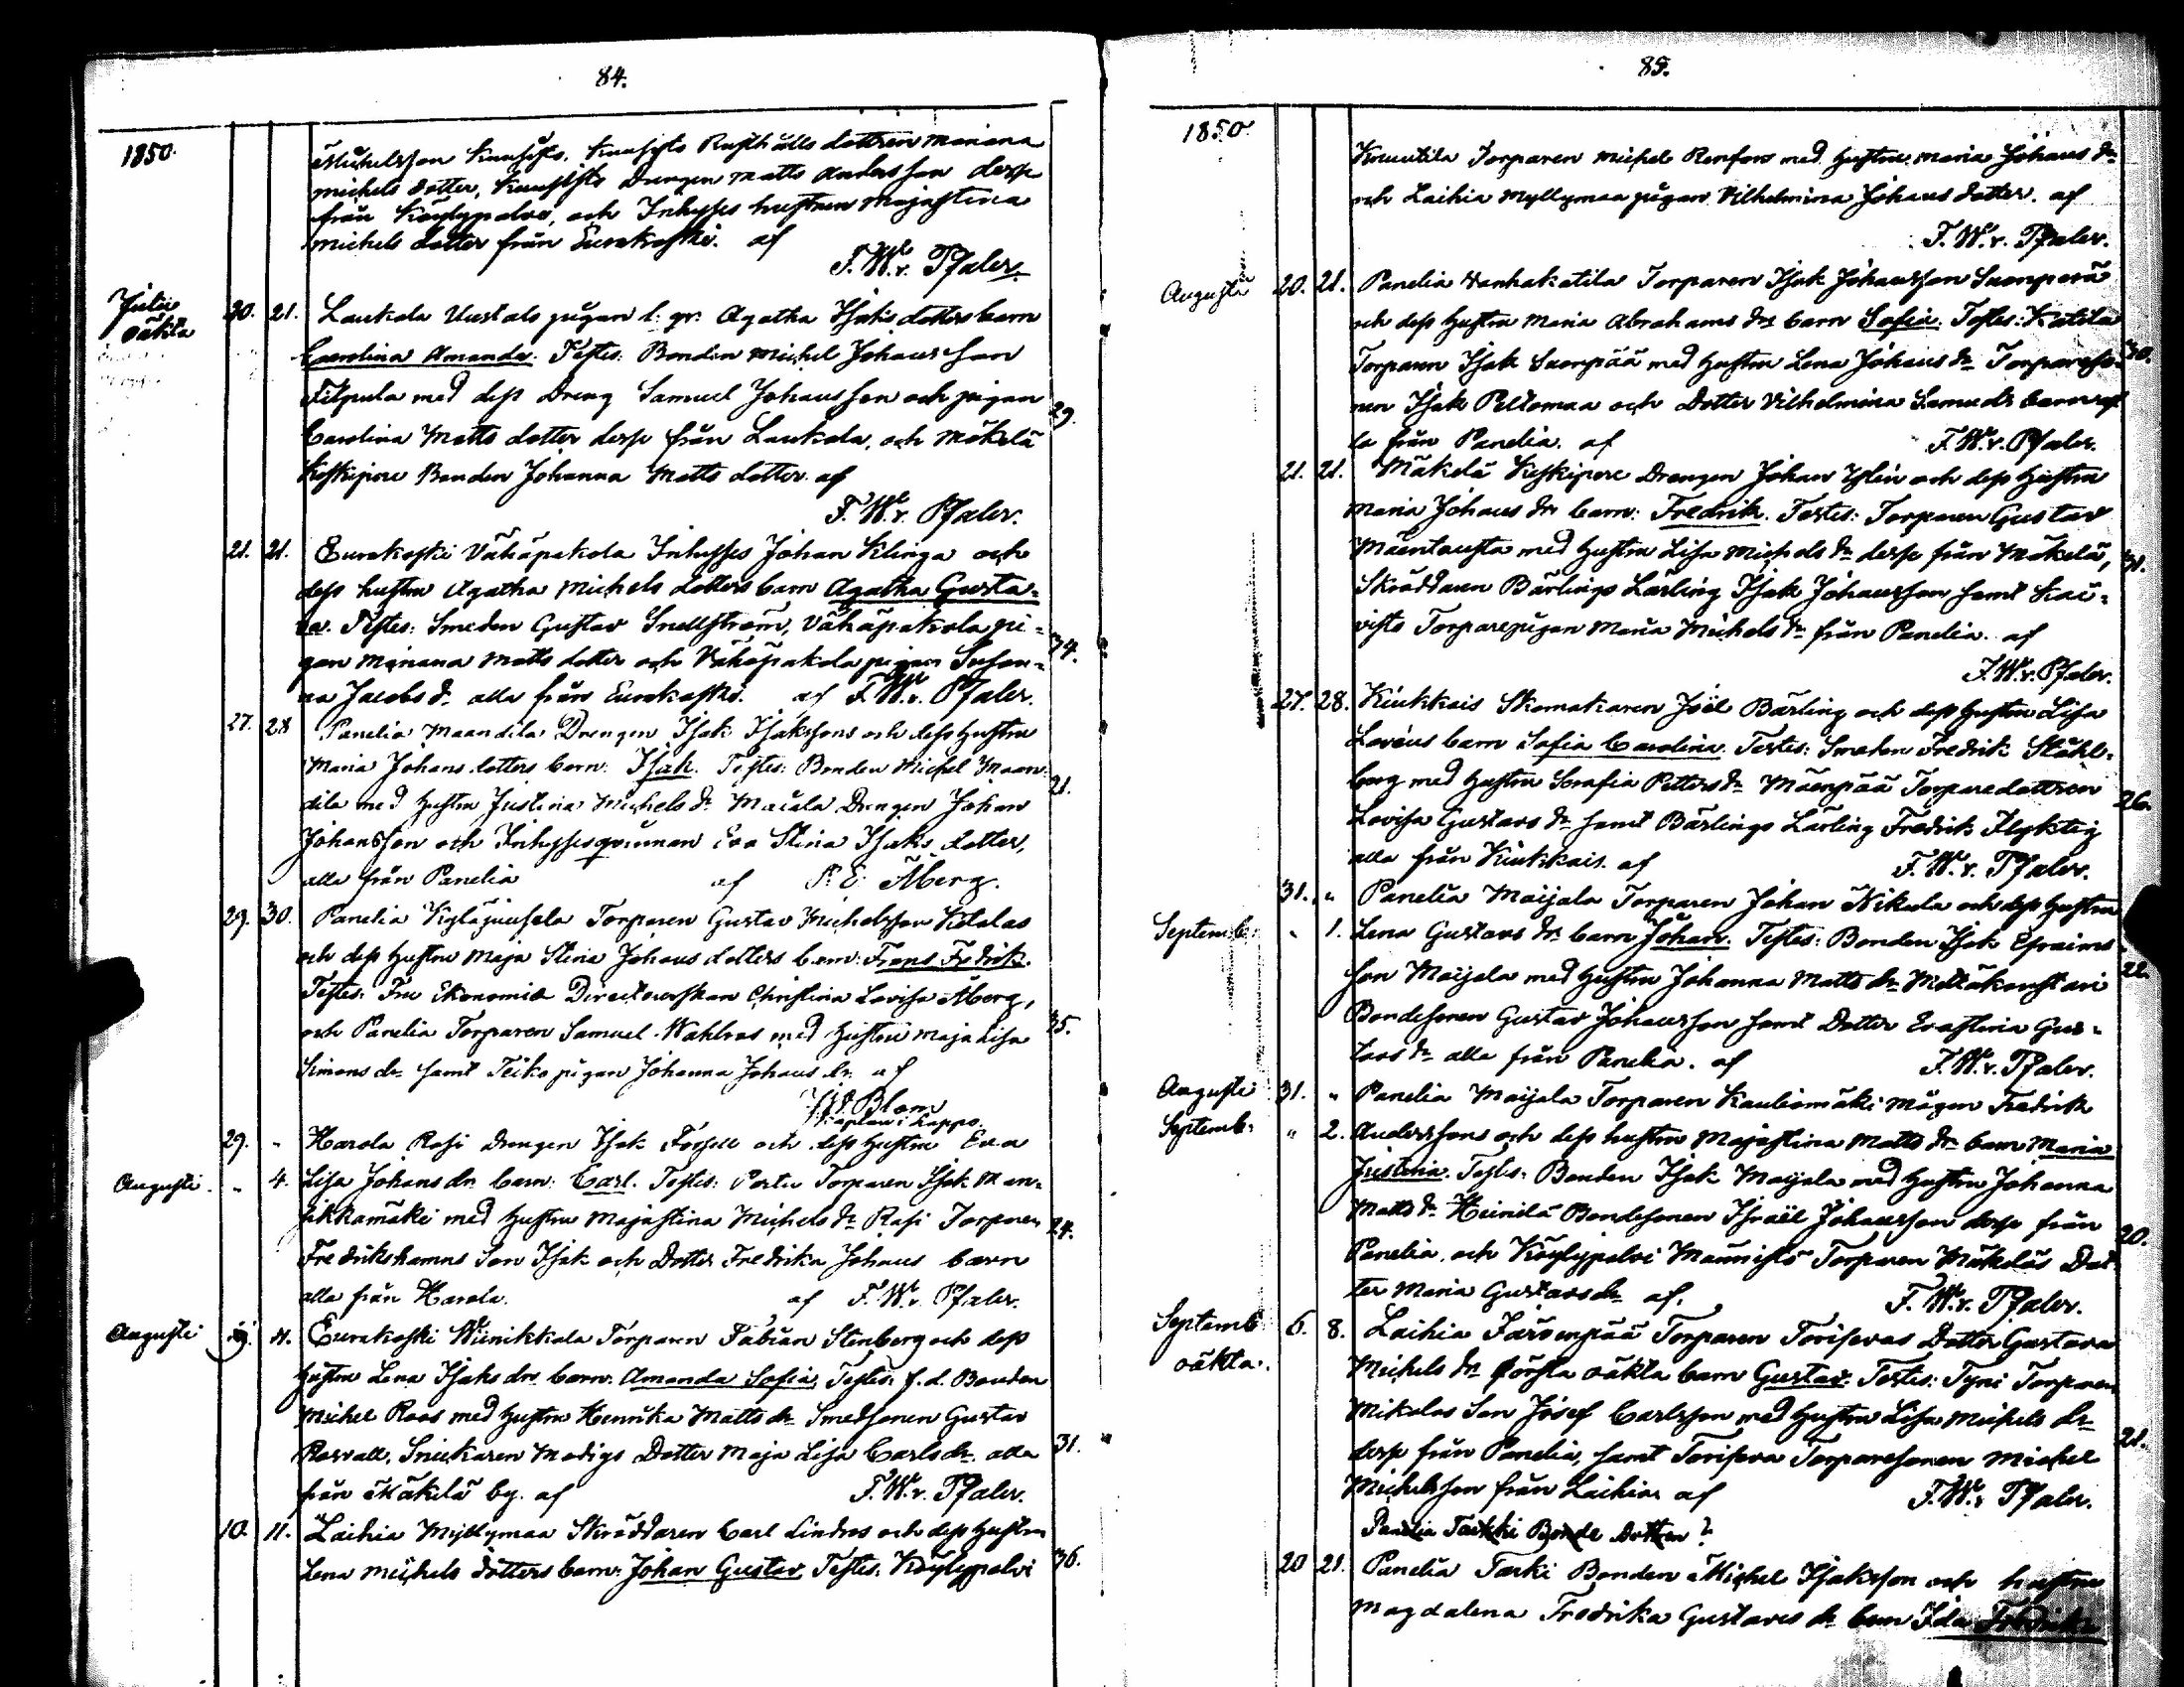 84.
1850.
Michelsson Kaussisto, Kaussisto Rusthålls dottren Mariana
Michels dotter, Kaussisto Drengen Matts Andersson desse
från Köylypolvi, och Inhyses hustrun Majastina
Michels dotter från Eurakoski. af
F. W. v. Pfaler.
Julii 20. 21. Laukola Uustalo pigan l. gr. Agatha Isaks dotters barn
oäkta
Carolina Amanda. Testes: Bonden Michel Johansson
Filpula med dess Dreng Samuel Johansson och pigan
Carolina Matts dotter desse från Laukola, och Mäkelä 29.
Keskipere Bonden Johanna Matts dotter. af
F. W. v. Pfaler.
21. 21. Eurakoski Vähäpakola Inhyses Johan Klinga och
dess hustru Agatha Michels dotters barn Agatha Gusta-
va. Testes: Smeden Gustav Snellström, Vähäpakola pi-
gan Mariana Matts dotter och Vähäpakola pigan Susan- 34.
na Jacobs dr alla från Eurakoski. af F. W. v. Pfaler.
27. 28 Panelia Maandila Drengen Isak Isakssons och dess hustru
Maria Johans dotters barn: Isak. Testes: Bonden Michel Maan-
dila med hustru Justina Michels dr Maiala Drengen Johan 21.
Johansson och Inhysesqvinnan Eva Stina Isaks dotter,
alla från Panelia af P. E. Åberg.
29. 30. Panelia Kyläjuusela Torparen Gustav Michelsson Ketolas
och dess hustru Maja Stina Johans dotters barn: Frans Fredrik.
Testes: Fru Ekonomie Directeurskan Christina Lovisa Åberg,
och Panelia Torparen Samuel Wahlroos med hustru Maja Lisa 35.
Simons dr samt Teiko pigan Johanna Johans dr. af
Blom
Kaplan i Kappo.
29. " Harola Rosi Drengen Isak Forsell och dess hustru Eva
Augusti. " 4. Lisa Johans dr barn: Carl. Testes: Perttu Torparen Isak Man-
sikkamäki med hustru Majastina Michels dr Rosi Torparen 24.
Fredrikshamns Son Isak och Dotter Fredrika Johans barn
alla från Harola. af F. W. v. Pfaler.
Augusti 4. Eurakoski Wiinikkala Torparen Fabian Stenberg och dess
hustru Lena Isaks dr barn: Amanda Sofia. Testes: f.d. Bonden
Michel Roos med hustru Henrika Matts dr Smedsonen Gustav
Rosvall, Snickaren Modigs Dotter Maja Lisa Carls dr. alla 31.
från Mäkelä by. af F. W. v. Pfaler.
10. 11. Laihia Myllymaa Skräddaren Carl Lindros och dess hustru
Lena Michels dotters barn: Johan Gustav. Testes: Köylypolvi 36.
85.
1850.
Knuutila Torparen Michel Renfors med hustru Maria Johans dr
och Laihia Myllymaa pigan Vilhelmina Johans dotter. af
F. W. v. Pfaler.
Augusti 20. 21. Panelia Vanhakatila Torparen Isak Johansson Suonperä
och dess hustru Maria Abrahams dr barn Sofia. Testes: Katila
Torparen Isak Suonpää med hustru Lena Johans dr Torpareso- 30.
nen Isak Peltomaa och Dotter Vilhelmina Samuels barn
la från Panelia. af F. W. v. Pfaler.
21. 21. Mäkelä Keskipere Drengen Johan Yslén och dess hustru
Maria Johans dr barn: Fredrik. Testes: Torparen Gustav
Mäentausta med hustru Lisa Michels dr desse från Mäkelä, 31.
Skräddaren Bärlings Lärling Isak Johansson samt Kai-
visto Torparepigan Maria Michels dr från Panelia. af
F. W. v. Pfaler.
27. 28. Kiukkais Skomakaren Joël Bärling och dess hustru Lisa
Lovéus barn Sofia Carolina. Testes: Smeden Fredrik Ståhl-
berg med hustru Serafia Petters dr Mäenpää Torparedottren 26.
Lovisa Gustavs dr samt Bärlings Lärling Fredrik Flyktig
alla från Kiukkais. af F. W. v. Pfaler.
31. " Panelia Maijala Torparen Johan Nikula och dess hustru
Septemb. " 1. Lena Gustavs dr barn Johan. Testes: Bonden Isak Efraims-
son Maijala med hustru Johanna Matts dr Mettäkonstari 22.
Bondesonen Gustav Johansson samt Dotter Evastina Gus-
tavs dr alla från Panelia. af F. W. v. Pfaler.
Augusti 31. " Panelia Maijala Torparen Kauliomäki Mågen Fredrik
Septemb. " 2. Anderssons och dess hustru Majastina Matts dr barn Maria
Justina. Testes: Bonden Isak Maijala med hustru Johanna
Matts dr Heinilä Bondesonen Israël Johansson desse från 20.
Panelia, och Köylypolvi Maunisto Torparen Mäkeläs Dot-
ter Maria Gustavs dr af. F. W. v. Pfaler.
Septemb. 6. 8. Laihia Järvenpää Torparen Torisevas Dotter Gustava
oäkta.
Michels dr första oäkta barn Gustav. Testes: Tyni Torparen
Mikolas Son Josef Carlsson med hustru Lisa Michels dr
desse från Panelia, samt Toriseva Torparesonen Michel 21.
Michelsson från Laihia. af F. W. v. Pfaler.
Panelia Tarkki Bonde Dotten ?
20 21. Panelia Tarki Bonden Michel Isaksson och hustru
Magdalena Fredrika Gustavs dr barn Ida Fredrika